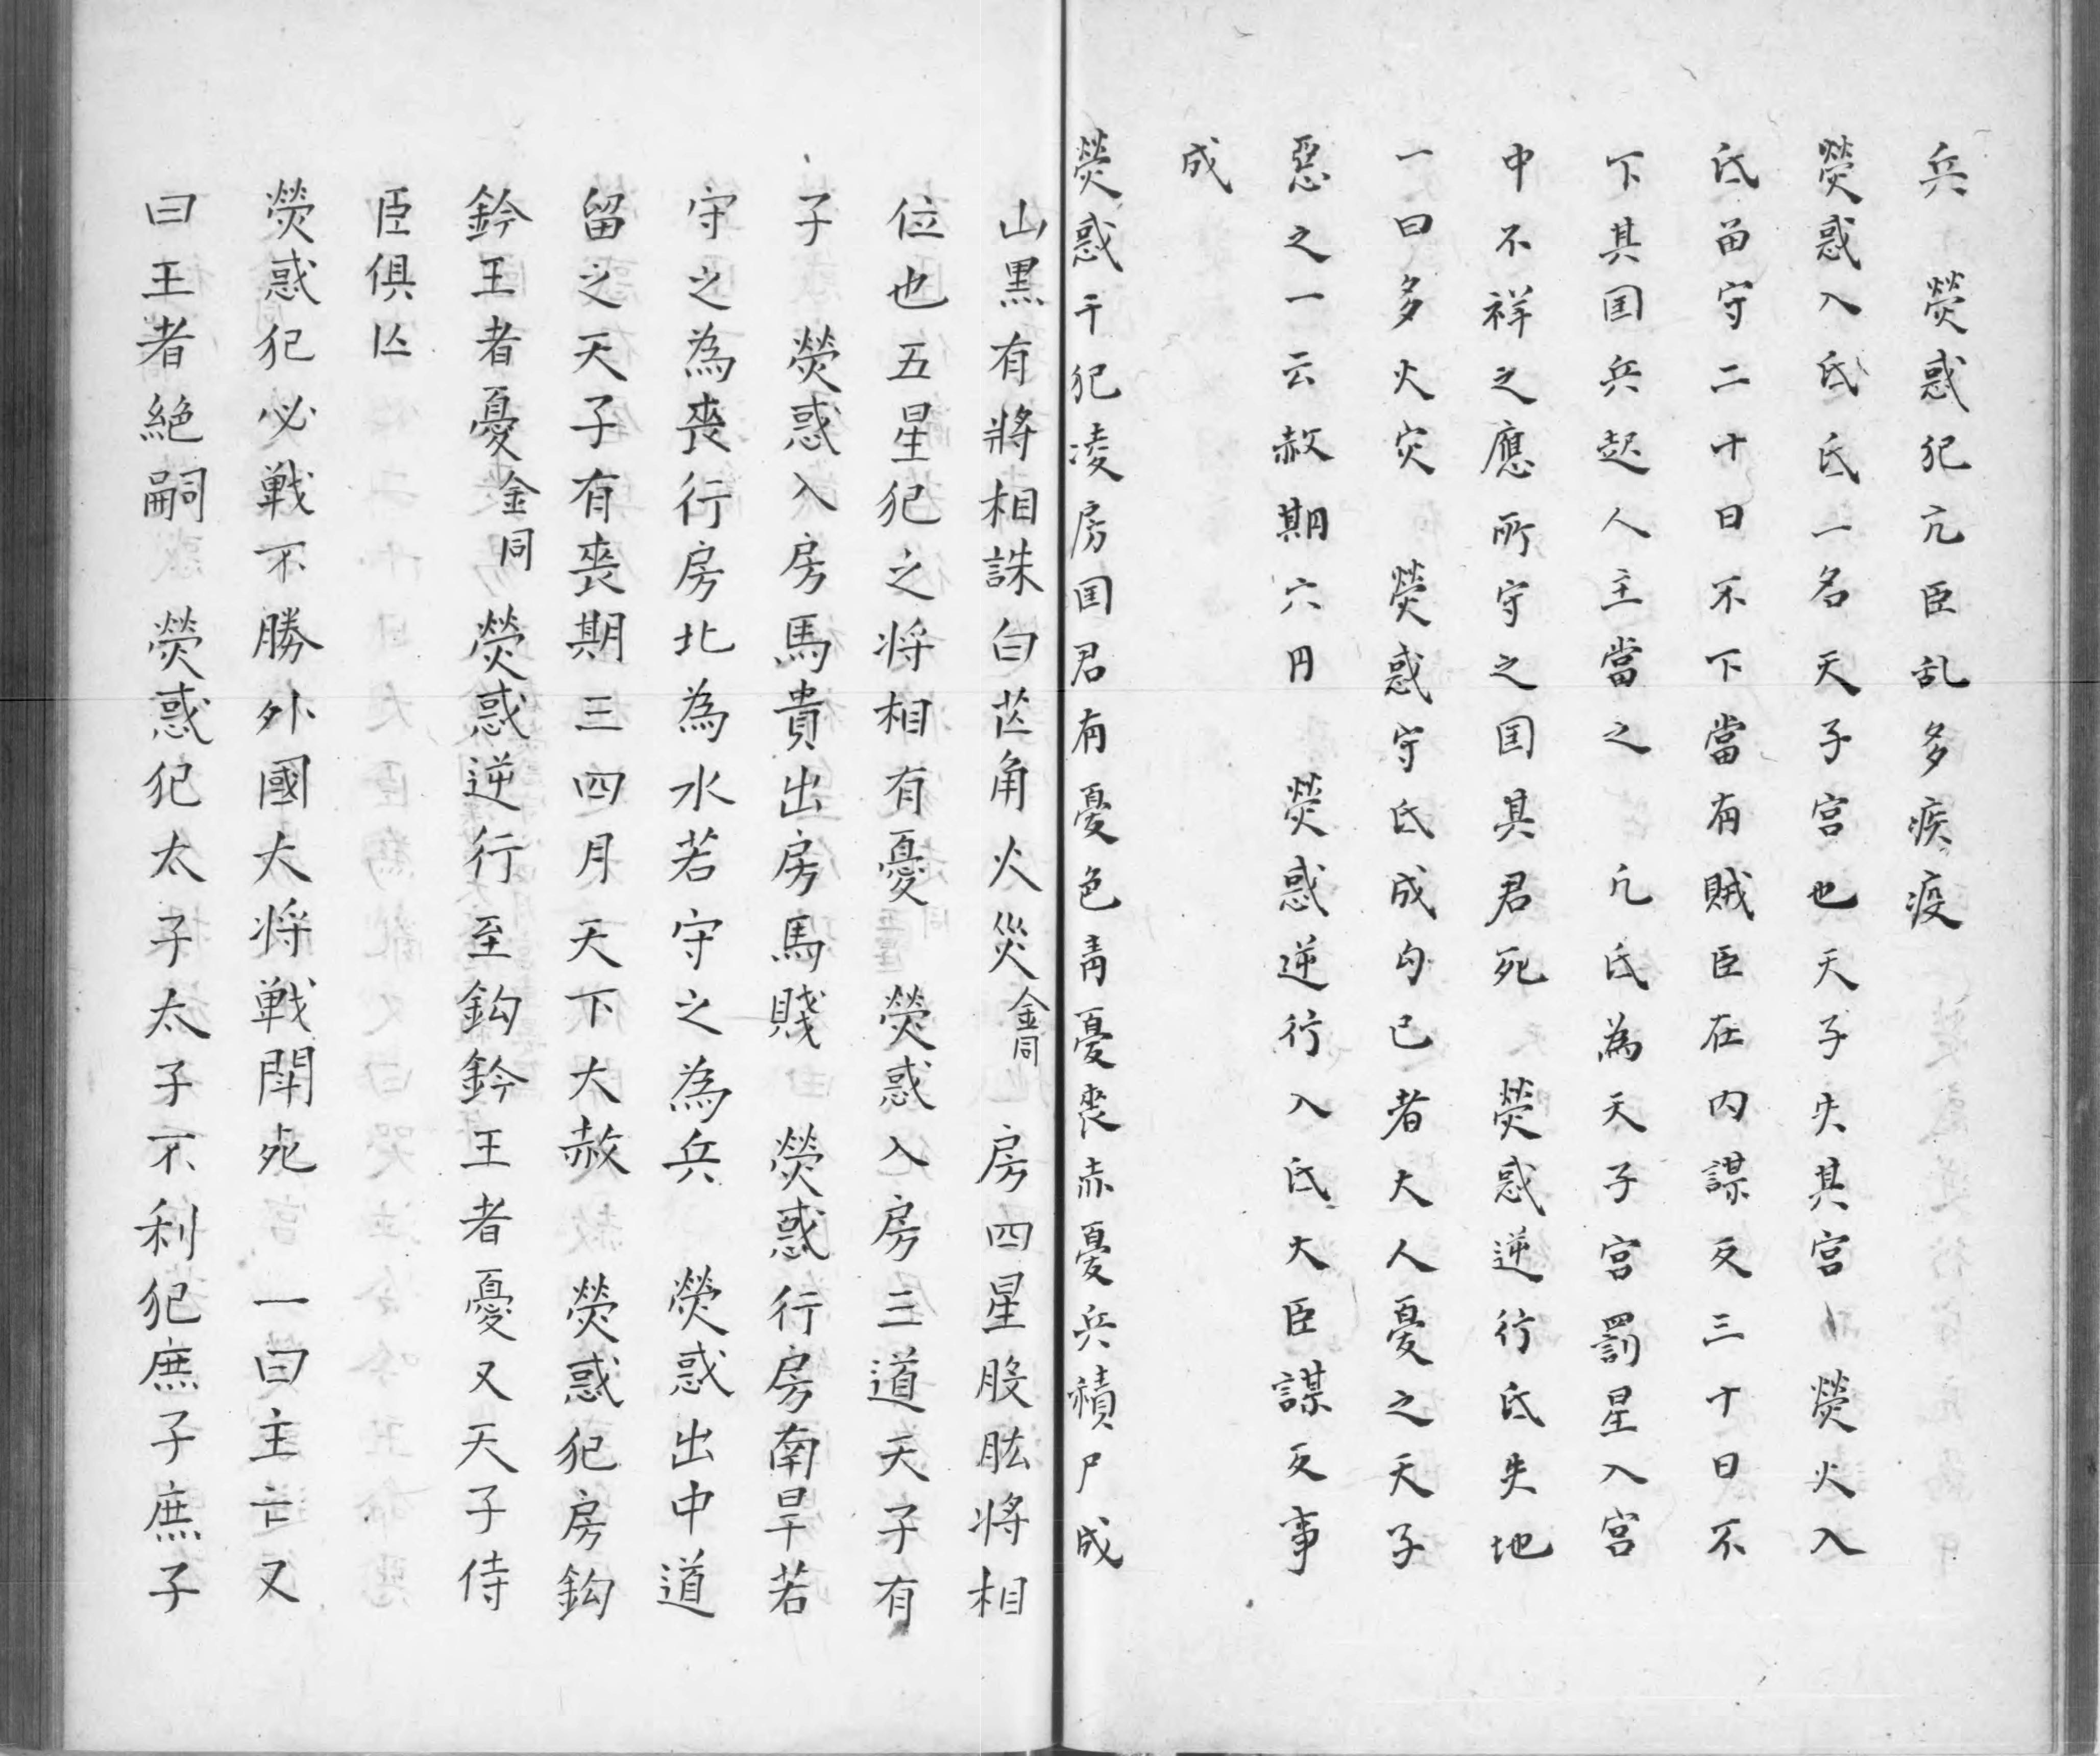 兵　熒惑犯亢臣乱多疾疫
熒惑入氐氐一名天子宮也天子失其宮　熒火入
氐畄守二十日不下當有賊臣在内謀反三十日不
下其囯兵起人主當之　凢氐為天子宮罰星入宮
中不祥之應所守之囯其君死　熒惑逆行氐失地
一曰多火灾　熒惑守氐成勾已者大人憂之天子
惡之一云赦期六月　熒惑逆行入氐大臣謀反事
成
熒惑干犯凌房囯君有憂色青憂喪赤憂兵積尸成
山黒有將相誅白芒角火災金同　房四星股肱将相
位也五星犯之将相有憂　熒惑入房三道天子有
子　熒惑入房馬貴出房馬賤　熒惑行房南旱若
守之為喪行房北為水若守之為兵　熒惑出中道
留之天子有喪期三四月天下大赦　熒惑犯房鈎
鈐王者憂金同　熒惑逆行至鈎鈐王者憂又天子侍
臣俱亡
熒惑犯必戰不勝外國大将戰鬪死　一曰主亡又
曰王者絶嗣　熒惑犯太子太子不利犯庶子庶子